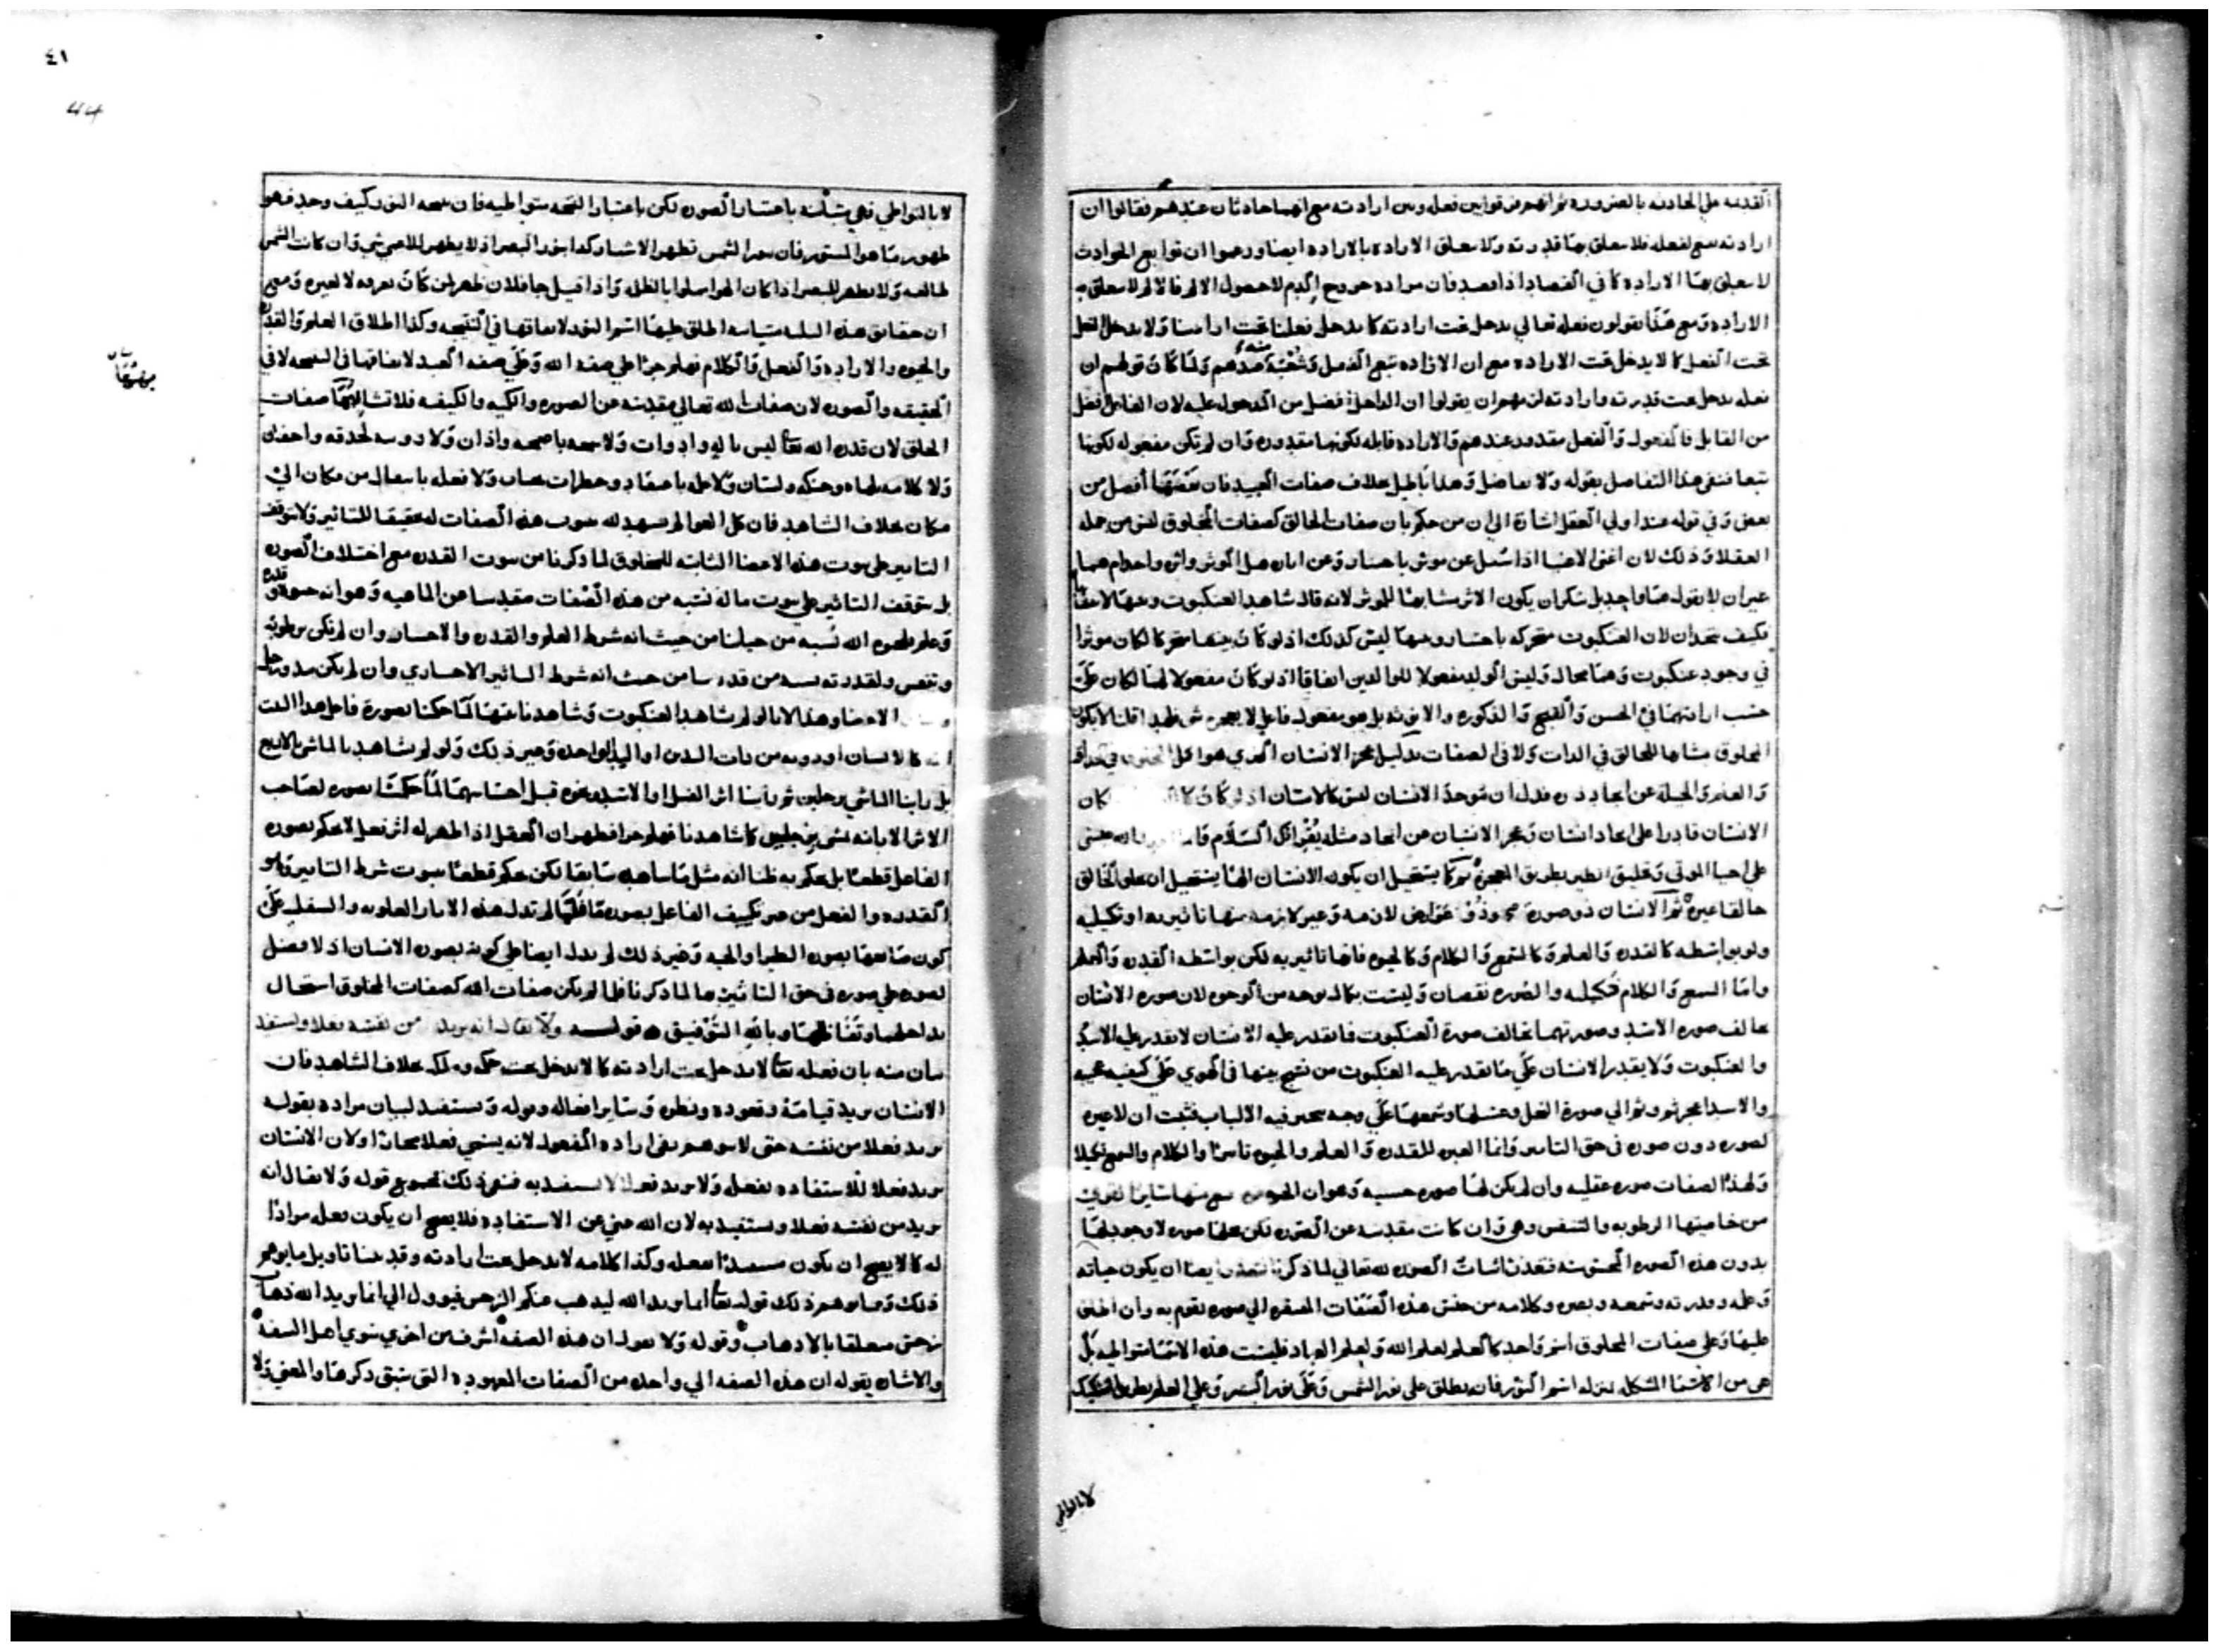 القديمه علي الحادثه بالضروره ثم انهم فرقوا بين فعله وبين ارادته مع انهما حادثان عندهم فقالوا ان
ارادته مع لفعله فلا تتعلق بها قدرته ولا تتعلق الاراده بالاراده ايضا وزعموا ان توابع الحوادث
لا تتعلق بها الاراده كما في الفصاد اذا فصد فان مراده خروج الدم لا حصول الالم فالالم لا تتعلق به
الاراده ومع هذا يقولون فعله تعالي يدخل تحت ارادته كما يدخل فعلنا تحت ارادتنا ولا يدخل الفعل
تحت الفعل كما لا يدخل تحت الاراده مع ان الاراده تتبع الفعل عندهم ولما كان قولهم ان
فعله يدخل تحت قدرته وارادته لزمهم ان يقولوا ان الداخل افضل من المدخول عليه لان الفاعل افضل
من القابل فالمفعول والفعل مقدور عندهم والاراده قابله لكونها مقدوره وان لم تكن مفعوله لكونها
تبعا فنفي هذا التفاضل بقوله ولا تفاضل وهذا باطل بخلاف صفات العبيد فان بعضها افضل من
بعض وفي قوله عند اولي العقل اشارة الي ان من حكم بان صفات الخالق كصفات المخلوق ليس من جمله
العقلا وذلك لان اغبي الاغبيا اذا سئل عن موثر باختيار وعن اثاره هل الموثر واثره واحد ام هما
غيران لا يقول هما واحد بل ينكر ان يكون الاثر مشابها للموثر لانه قال شاهد العنكبوت
فكيف يتحدان لان العنكبوت متحركه باختيار وبيتها ليس كذلك اذ لو كان بيتها متحركا لكان موثرا
في وجود عنكبوت وهذا محال وليس الولد مفعولا للوالدين اتفاقا اذ لو كان مفعولا لهما لكان علي
حسب ارادتهما في الحسن والقبح والذكوره والانوثه بل هو مفعول فاعل لا يعجزه شي فلهذا قلنا لا يكون
المخلوق مشابها للخالق في الذات ولا في الصفات بدليل عجز الانسان الذي هو اعلي
والعلم والحيله عن ايجاد ذره فدل ان موجد الانسان ليس كالانسان اذ لو كان كا لكان
الانسان قادرا علي ايجاد انسان وعجز الانسان عن ايجاد مثله يقوي ذلك السلام
علي احيا الموتي وتخليق الطير بطريق المعجزه ثم كما يستحيل ان يكون الانسان الها يستحيل ان
خالقا غيره ثم الانسان ذو صورة وذو عوارض لازمه وغير لازمه منها تاثيريه او تكميليه
ولو بواسطه كالقدره والعلم وكالسمع والكلام وكالحيوه فانها تاثيريه لكن بواسطه القدره والعلم
واما السمع والكلام فتكميليه والصوره نقصان وليست بكمال بوجه من الوجوه لان صوره الانسان
تخالف صوره الاسد وصورتهما تخالف صورة العنكبوت فما يقدر عليه الانسان لا يقدر عليه الاسد
والعنكبوت ولا يقدر الانسان علي ما يقدر عليه العنكبوت من نسج بيتها في الهوي علي كيفيه عجيبه
والاسد اعجز ثم وثم الي صورة النحل وعسلها وشمعها علي وجه تتحير فيه الالباب فثبت ان لا عبره
لصوره دون صوره في حق التاثير وانما العبره للقدره والعلم والحيوه تاثيرا والكلام والسمع تكميلا
ولهذه الصفات صوره عقليه وان لم يكن لها صوره حسيه وهو ان الحيوه
من خاصيتها الرطوبه والتنفس وهي وان كانت مقدسه عن الصوره لكن محلها صوره لا وجود لها
بدون هذه الصوره المحسوسه فتعذر اثبات الصوره لله تعالي لما ذكرنا تعذر ايضا ان يكون حياته
وعلمه وقدرته وسمعه وبصره وكلامه من جنس هذه الصفات المفتقره الي صوره تقوم به وان اطلق
عليها وعلي صفات المخلوق اسم واحد كالعلم لعلم الله ولعلم العباد فليست هذه الاسما متواطيه بل
هي من الاسما المشككه بمنزله اسم النور فانه يطلق علي نور الشمس وعلي نور البصر وعلي العلم بطريق التشكيك
لا بالتواطي
٤١
44
لا بالتواطي فهي متباينه باعتبار الصوره لكن باعتبار النتيجه متواطيه فان نتيجه النور كيف وجد فهو
ظهور ما هو المستور فان نور الشمس تظهر الاشيا وكذا نور البصر اذ لا يظهر للاعمي شي وان كانت الشمس
طالعه ولا يظهر للبصر اذا كان الهوا مملوا بالظله واذا قيل جا فلان ظهر لمن كان يعرفه لا لغيره ومع
ان حقايق هذه الثلثه متباينه اطلق عليها اسم النور لاتفاقها في النتيجه وكذا اطلاق العلم والقدره
والحيوه والاراده والفعل والكلام فعلم جرا علي صفه الله وعلي صفه العبد لاتفاقها في النتيجه لا في
الحقيقه والصوره لان صفات الله تعالي مقدسه عن الصوره والكميه والكيفيه فلا تشابهها صفات
الخلق لان قدره الله تعالي ليس باله وادوات ولا سمعه باصمخه واذان ولا رويته لحدقه واجفان
ولا كلامه بلهاه وحنكه ولسان ولا علمه باعتقاد وخطرات جنان ولا فعله بانتقال من مكان الي
مكان بخلاف الشاهد فان كل العوالم تشهد له بثبوت هذه الصفات له تحقيقا للتاثير ولا يتوقف
التاثير علي ثبوت هذه الاعضا الثابته للمخلوق لما ذكرنا من ثبوت القدره مع اختلاف الصوره
بل يتوقف التاثير علي ثبوت ما له نسبه من هذه الصفات مقدسا عن الماهيه وهو انه حيوه وقدره
وعلم فلحيوه الله نسبه من حياتنا من حيث انه شرط العلم والقدره والاحسان وان لم تكن برطوبه
وتنفس ولقدرته نسبه من قدرتنا من حيث انه شرط التاثير الاختياري وان لم يكن
الاعضا وهذا لانا لو لم نشاهد العنكبوت وشاهدنا بيتها لما حكمنا بصورة فاعل هذا البيت
انه كالانسان او دونه من ذات اليدين او اليد الواحده وغير ذلك ولو لم نشاهد الماشي بالاربع
بل راينا الماشي برجلين ثم راينا اثر الفيل او الاسد ونحوه قبل احساسهما لما حكمنا بصوره لصاحب
الاثر الا بانه يمشي برجلين كما شاهدنا فعلم جرا فظهر ان العقل اذا ظهر له اثر فعل لا يحكم بصوره
الفاعل قطعا بل يحكم به ظنا انه مثل ما شاهده سابقا لكن يحكم قطعا بثبوت شرط التاثير وهو
القدره والفعل من غير تكييف الفاعل بصوره ما فلما لم تدل هذه الاثار العلويه والسفليه علي
كون صانعها بصوره الطير او الحيه وغير ذلك لم يدل ايضا علي كونه بصوره الانسان اذ لا فضل
لصوره علي صوره في حق التاثير لما ذكرنا فلما لم يكن صفات الله كصفات المخلوق استحال
تداخلها وتفاضلها وبالله التوفيق ه قوله ولا يقال انه يريد من نفسه فعلا ويستفيد
بيان منه بان فعله تعالي لا يدخل تحت ارادته كما لا يدخل تحت حكمه وملكه بخلاف الشاهد فان
الانسان يريد قيامه وقعوده ونظره وساير افعاله وقوله ويستفيد لبيان مراده بقوله
يريد فعلا من نفسه حتي لا يتوهم نفي اراده المفعول لانه يسمي فعلا مجازا ولان الانسان
يريد فعلا للاستفاده بفعله ولا يريد فعلا لا يستفيد به فنفي ذلك بمجموع قوله ولا يقال انه
يريد من نفسه فعلا ويستفيد به لان الله غني عن الاستفاده فلا يصح ان يكون فعله مرادا
له كما لا يصح ان يكون مستفيدا بفعله وكذا كلامه لا يدخل تحت ارادته وقد بينا تاويل ما يوهم
ذلك ومما يوهم ذلك قوله تعالي انما يريد الله ليذهب عنكم الرجس فيوول الي انما يريد الله ذهاب
رجس متعلقا بالاذهاب وقوله ولا نقول ان هذه الصفه اشرف من اخري سوي اهل السفه
والاشاره بقوله ان هذه الصفه الي واحده من الصفات المعهوده التي سبق ذكرها والمعني ولا